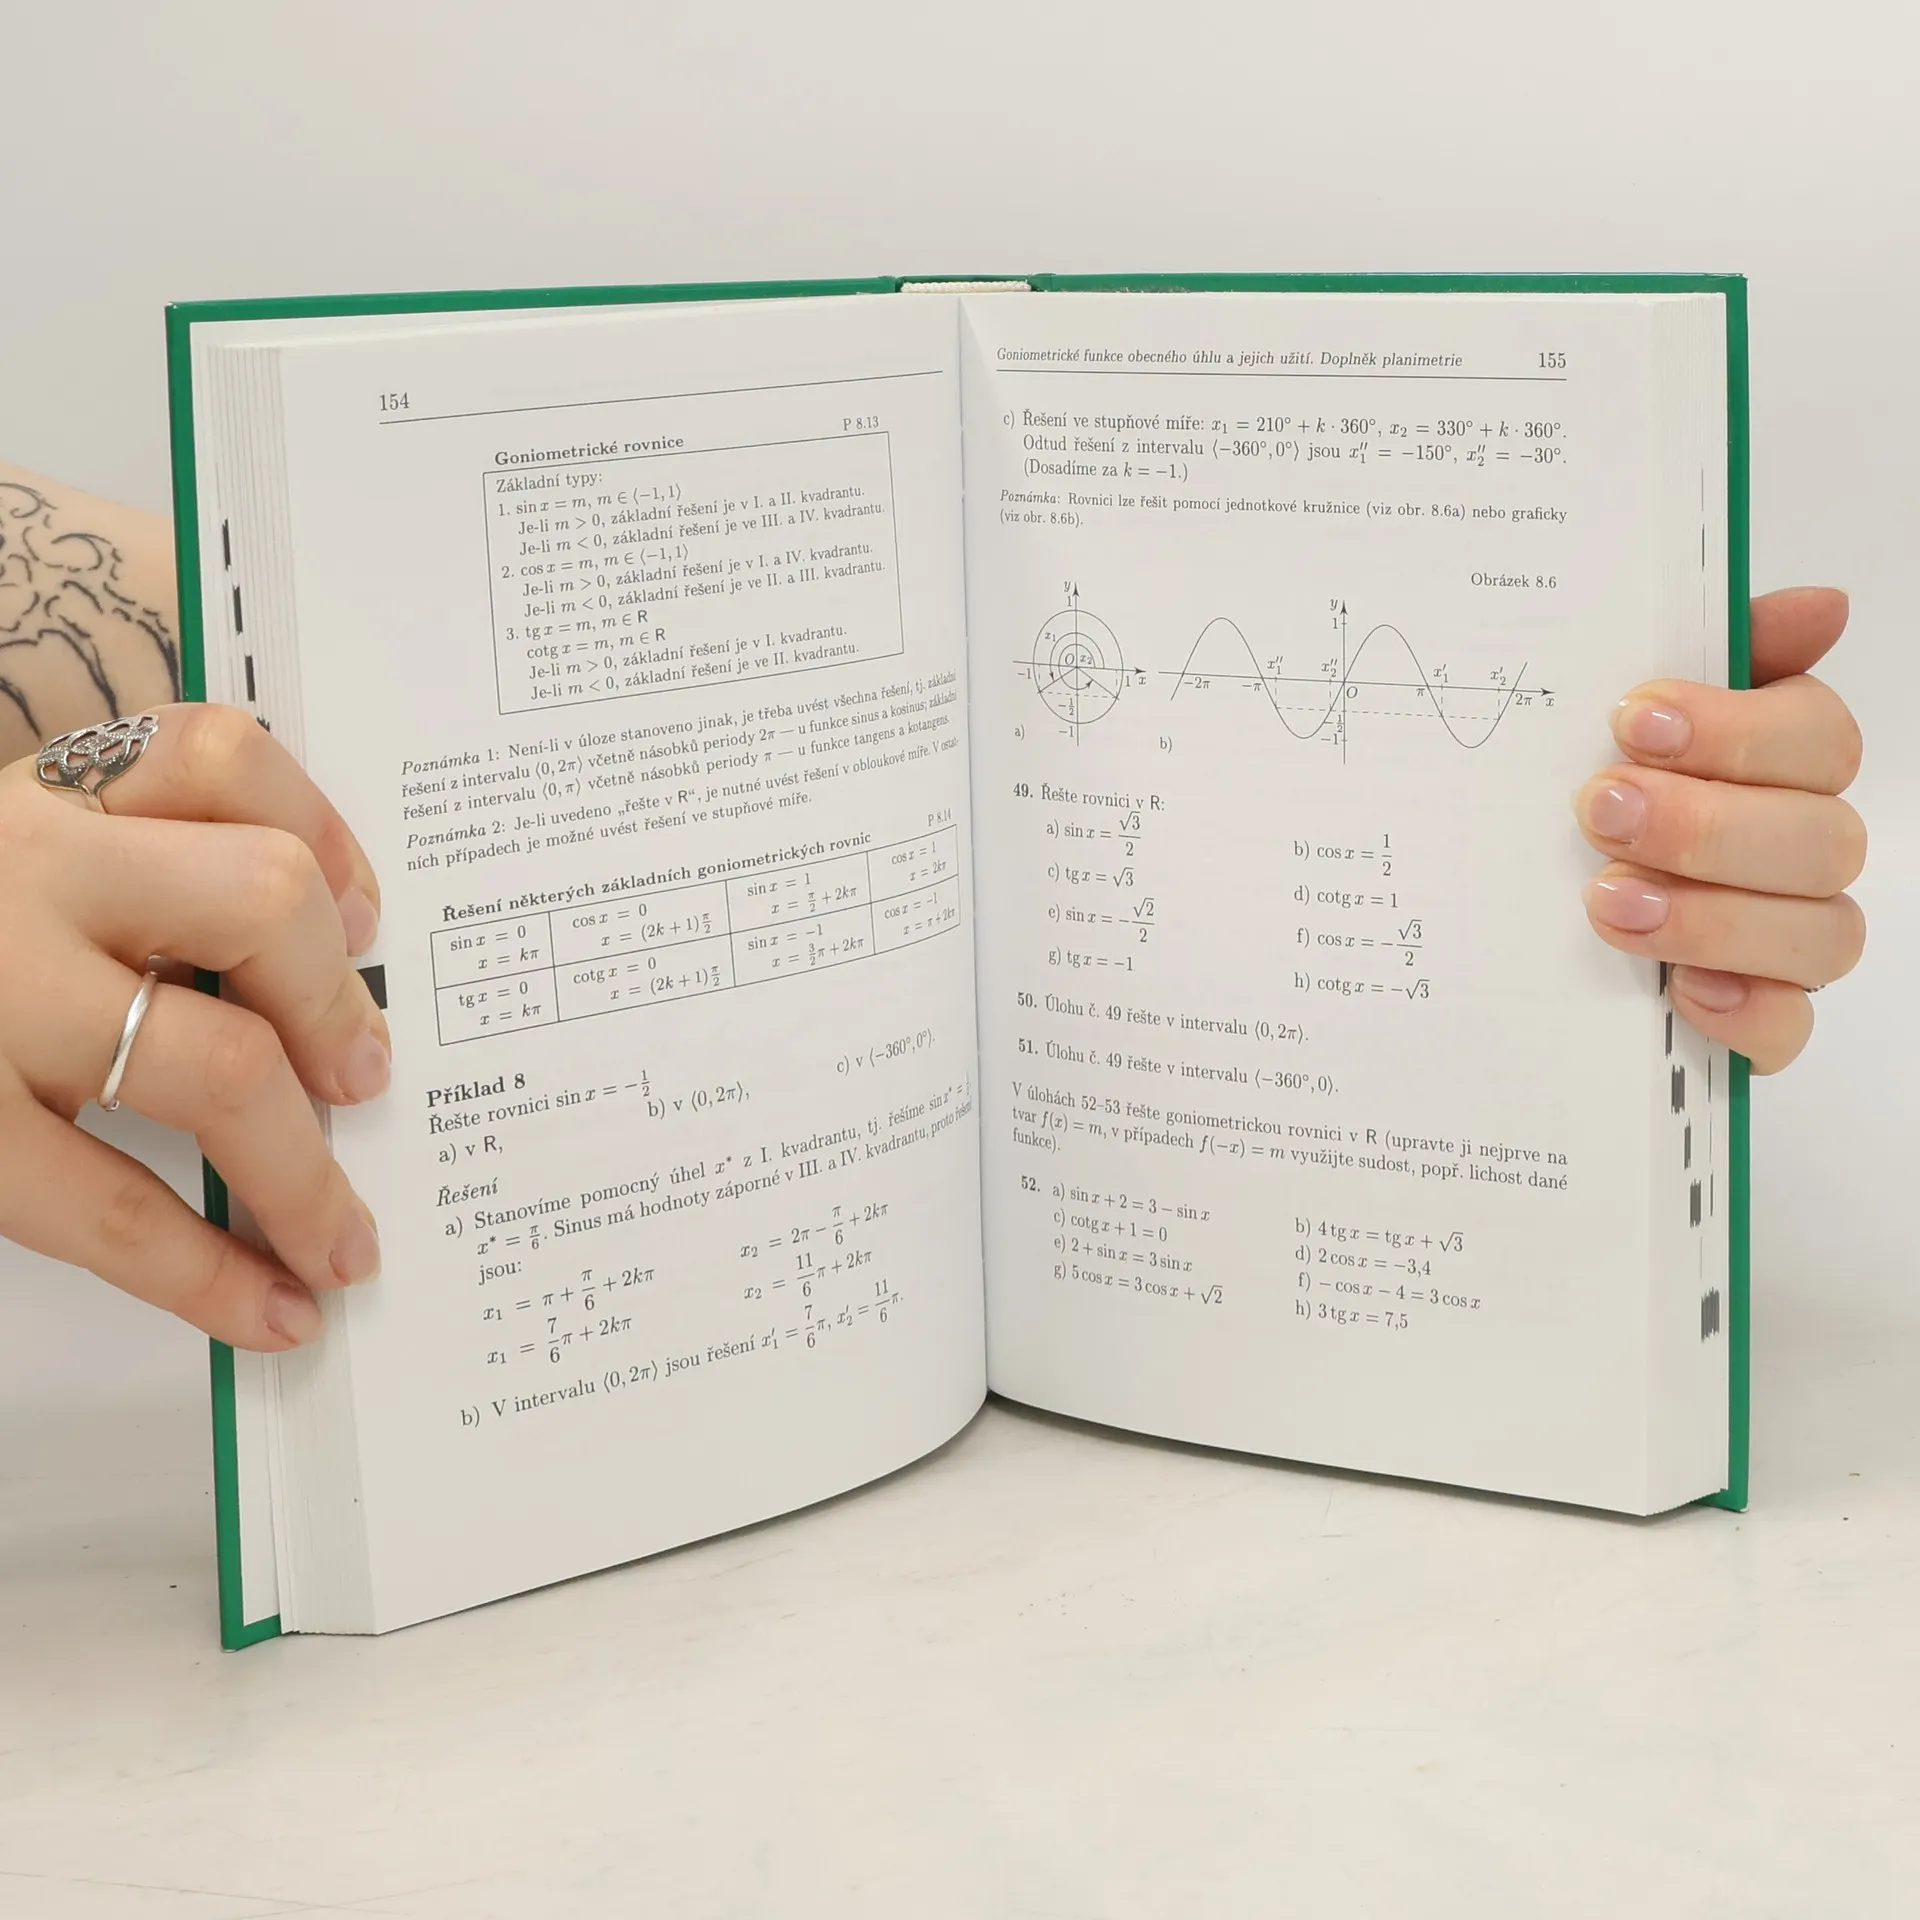 154
P 8.13
Goniometrické rovnice
Základní typy:
1. sin x = m, m ∈ ⟨−1, 1⟩
Je-li m > 0, základní řešení je v I. a II. kvadrantu.
Je-li m < 0, základní řešení je ve III. a IV. kvadrantu.
2. cos x = m, m ∈ ⟨−1, 1⟩
Je-li m > 0, základní řešení je v I. a IV. kvadrantu.
Je-li m < 0, základní řešení je ve II. a III. kvadrantu.
3. tg x = m, m ∈ R
cotg x = m, m ∈ R
Je-li m > 0, základní řešení je v I. kvadrantu.
Je-li m < 0, základní řešení je ve II. kvadrantu.
Poznámka 1: Není-li v úloze stanoveno jinak, je třeba uvést všechna řešení, tj. základní
řešení z intervalu ⟨0, 2π) včetně násobků periody 2π — u funkce sinus a kosinus; základní
řešení z intervalu ⟨0, π) včetně násobků periody π — u funkce tangens a kotangens.
Poznámka 2: Je-li uvedeno „řešte v R“, je nutné uvést řešení v obloukové míře. V ostat-
ních případech je možné uvést řešení ve stupňové míře.
P 8.14
Řešení některých základních goniometrických rovnic
sin x = 0
x = kπ
cos x = 0
x = (2k + 1)π/2
sin x = 1
x = π/2 + 2kπ
cos x = 1
x = 2kπ
tg x = 0
x = kπ
cotg x = 0
x = (2k + 1)π/2
sin x = −1
x = 3/2π + 2kπ
cos x = −1
x = π + 2kπ
Příklad 8
Řešte rovnici sin x = −1/2
a) v R, b) v ⟨0, 2π), c) v ⟨−360°, 0°).
Řešení
a) Stanovíme pomocný úhel x* z I. kvadrantu, tj. řešíme sin x* = 1/2,
x* = π/6. Sinus má hodnoty záporné v III. a IV. kvadrantu, proto řešení
jsou:
x₁ = π + π/6 + 2kπ x₂ = 2π − π/6 + 2kπ
x₁ = 7/6π + 2kπ x₂ = 11/6π + 2kπ
b) V intervalu ⟨0, 2π) jsou řešení x′₁ = 7/6π, x′₂ = 11/6π.
Goniometrické funkce obecného úhlu a jejich užití. Doplněk planimetrie 155
c) Řešení ve stupňové míře: x₁ = 210° + k · 360°, x₂ = 330° + k · 360°.
Odtud řešení z intervalu ⟨−360°, 0°) jsou x″₁ = −150°, x″₂ = −30°.
(Dosadíme za k = −1.)
Poznámka: Rovnici lze řešit pomocí jednotkové kružnice (viz obr. 8.6a) nebo graficky
(viz obr. 8.6b).
Obrázek 8.6
y
1
x₁
O
x₂
−1
1
x
−1/2
−1
a)
y
1
x″₁
x″₂
x′₁
x′₂
−2π
−π
O
π
2π
x
−1/2
−1
b)
49. Řešte rovnici v R:
a) sin x = √3/2 b) cos x = 1/2
c) tg x = √3 d) cotg x = 1
e) sin x = −√2/2 f) cos x = −√3/2
g) tg x = −1 h) cotg x = −√3
50. Úlohu č. 49 řešte v intervalu ⟨0, 2π).
51. Úlohu č. 49 řešte v intervalu ⟨−360°, 0).
V úlohách 52–53 řešte goniometrickou rovnici v R (upravte ji nejprve na
tvar f(x) = m, v případech f(−x) = m využijte sudost, popř. lichost dané
funkce).
52. a) sin x + 2 = 3 − sin x b) 4 tg x = tg x + √3
c) cotg x + 1 = 0 d) 2 cos x = −3,4
e) 2 + sin x = 3 sin x f) − cos x − 4 = 3 cos x
g) 5 cos x = 3 cos x + √2 h) 3 tg x = 7,5